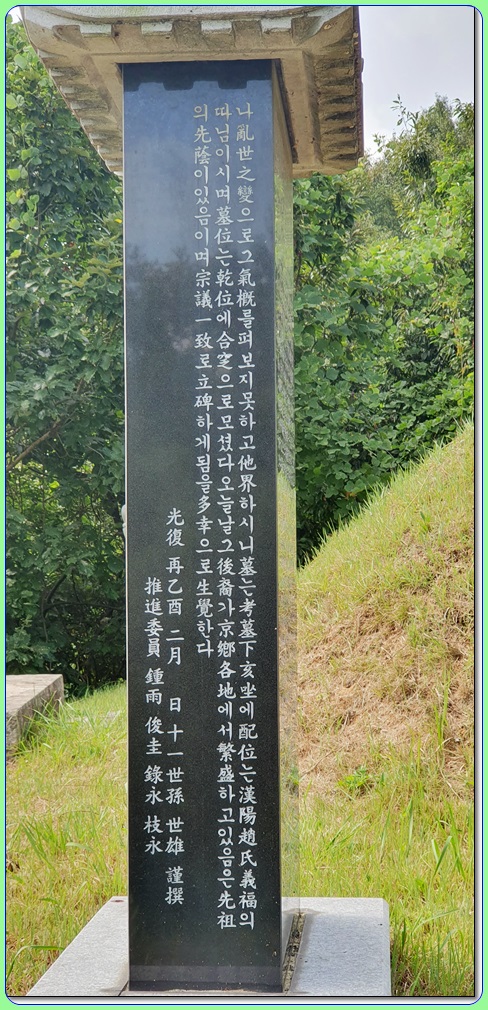 나 亂世之變으로 그 氣槪를 펴 보지 못하고 他界하시니 墓는 考墓下亥坐에 配位는 漢陽趙氏義福의
따님이시며 墓位는 乾位에 合窆으로 모셨다 오늘날 그 後裔가 京鄕各地에서 繁盛하고 있음은 先祖
의 先蔭이 있음이며 宗議一致로 立碑하게 됨을 多幸으로 生覺한다
光復 再乙酉 二月 日 十一世孫 世雄 謹撰
推進委員 鍾雨 俊圭 錄永 枝永